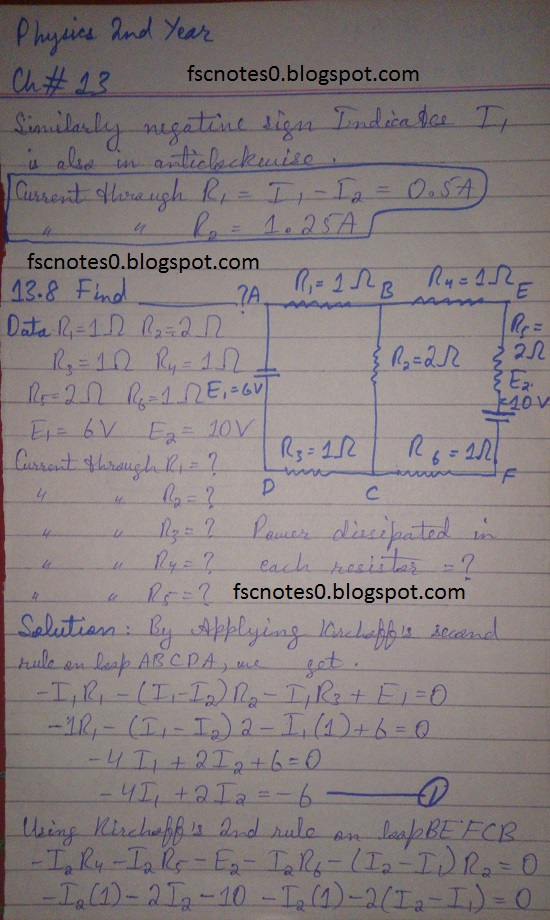 Physics 2nd Year
Ch # 13
fscnotes0.blogspot.com
Similarly negative sign Indicates I₁
is also in anticlockwise.
Current through R₁ = I₁ - I₂ = 0.5A
" " R₂ = 1.25A
fscnotes0.blogspot.com
13.8 Find ________ ?
Data R₁=1Ω R₂=2Ω
R₃=1Ω R₄=1Ω
R₅=2Ω R₆=1Ω
E₁= 6V E₂= 10V
Current through R₁=?
" " R₂=?
" " R₃=? Power dissipated in
" " R₄=? each resistor =?
" " R₅=?
fscnotes0.blogspot.com
A R₁=1Ω B R₄=1Ω E
R₅=
2Ω
R₂=2Ω
E₁=6V
E₂
=10V
R₃=1Ω R₆=1Ω
D C F
Solution: By Applying Kirchoff's second
rule on loop ABCDA, we get.
-I₁R₁ - (I₁-I₂)R₂ - I₁R₃ + E₁=0
-1R₁ - (I₁ - I₂)2 - I₁(1)+6=0
-4I₁ + 2I₂+6=0
-4I₁ +2I₂ = -6 ——— ①
Using Kirchoff's 2nd rule on loop BEFCB
-I₂R₄ -I₂R₅ -E₂ -I₂R₆ -(I₂-I₁)R₂=0
-I₂(1) -2I₂ -10 -I₂(1) -2(I₂-I₁)=0